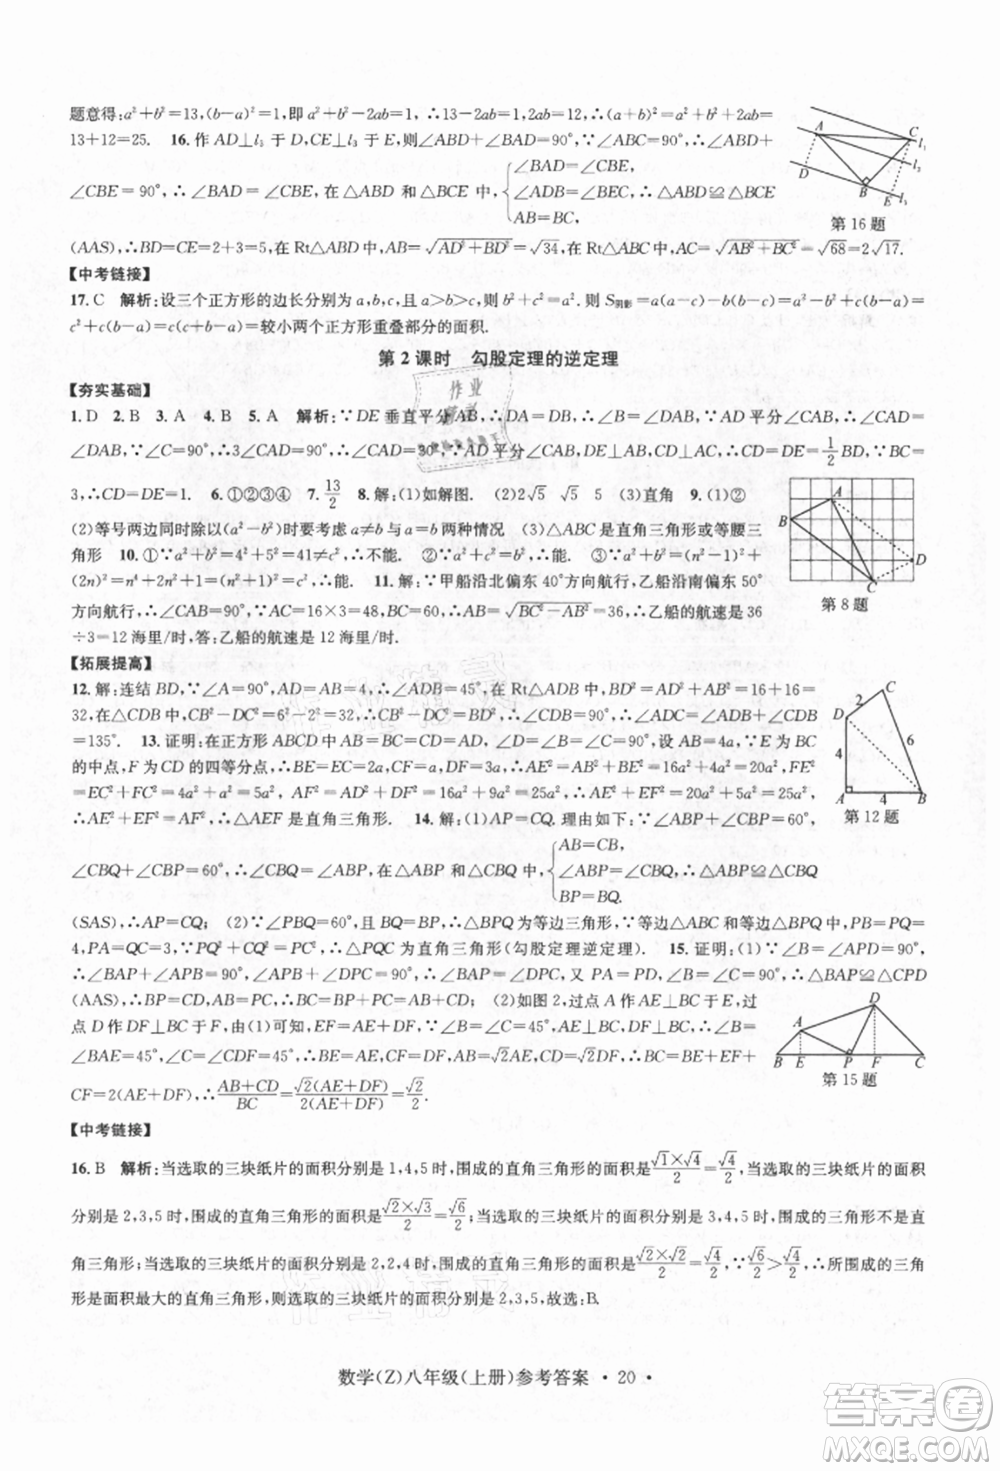 题意得:a²+b²=13,(b-a)²=1,即a²+b²-2ab=1,∴13-2ab=1,∴2ab=12,∴(a+b)²=a²+b²+2ab=
13+12=25. 16.作AD⊥l₃于D,CE⊥l₃于E,∵∠ABC=90°,∴∠ABD+∠CBE=90°,又∵∠BAD+∠ABD=90°,
∴∠BAD=∠CBE,在△ABD和△BCE中,{∠BAD=∠CBE,∠ADB=∠BEC,AB=BC,∴△ABD≌△BCE
(AAS),∴BD=CE=2+3=5,在Rt△ABD中,AB=√(AD²+BD²)=√34,在Rt△ABC中,AC=√(AB²+BC²)=√68=2√17.
A C l₁ D B E l₃
第16题
【中考链接】
17.C 解析:设三个正方形的边长分别为a,b,c,且a>b>c,则b²+c²=a². 则S阴影=a(a-c)-b(b-c)=a²-ac-b²+bc=
c²+c(b-a)=c(b+c-a)=较小两个正方形重叠部分的面积.
第2课时 勾股定理的逆定理
【夯实基础】
1.D 2.B 3.A 4.B 5.A 解析:∵DE垂直平分AB,∴DA=DB,∴∠B=∠DAB,∵AD平分∠CAB,∴∠CAD=
∠DAB,∵∠C=90°,∴3∠CAD=90°,∴∠CAD=30°,∵AD平分∠CAB,DE⊥AB,CD⊥AC,∴CD=DE=1/2BD,∵BC=
3,∴CD=DE=1. 6.①②③④ 7.13/2 8.解:(1)如解图. (2)2√5 √5 5 (3)直角 9.(1)②
(2)等号两边同时除以(a²-b²)时要考虑a≠b与a=b两种情况 (3)△ABC是直角三角形或等腰三
角形 10.①∵a²+b²=4²+5²=41≠6²=c²,∴不能. ②∵a²+b²=c²,∴能. ③∵a²+b²=(n²-1)²+
(2n)²=(n²+1)²=c²,∴能. 11.解:∵甲船沿北偏东40°方向航行,乙船沿南偏东50°
方向航行,∴∠CAB=90°,∵AC=16×3=48,BC=60,∴AB=√(BC²-AB²)=36,∴乙船的航速是36
÷3=12海里/时,答:乙船的航速是12海里/时.
A B D C
第8题
【拓展提高】
12.解:连结BD,∵∠A=90°,AB=AD=4,∴∠ADB=45°,在Rt△ADB中,BD²=AD²+AB²=16+16=
32,在△CDB中,CB²-DC²=6²-2²=32,∴CB²-DC²=BD²,∴∠CDB=90°,∴∠ADC=45°+90°
=135°. 13.证明:在正方形ABCD中,∵AB=AD=BC=DC,∠B=∠C=∠D=90°,设AB=4a,∵E为BC
的中点,F为CD的四等分点,∴BE=EC=2a,CF=a,DF=3a,∴AE²=AB²+BE²=16a²+4a²=20a²,
EF²=EC²+FC²=4a²+a²=5a², AF²=AD²+DF²=16a²+9a²=25a²,∵20a²+5a²=25a²,
∴AE²+EF²=AF²,∴△AEF是直角三角形. 14.解:(1)AP=CQ.理由如下:∵∠ABP+∠CBP=60°,
∠CBQ+∠CBP=60°,∴∠CBQ=∠ABP,在△ABP和△CBQ中,{AB=CB,∠ABP=∠CBQ,BP=BQ.∴△ABP≌△CBQ
D 2 C 4 6 A 4 B
第12题
(SAS),∴AP=CQ; (2)∵∠PBQ=60°,且BQ=BP,∴△BPQ为等边三角形,∵等边△ABC和等边△BPQ中,PB=PQ=
4,PA=QC=3,∵PQ²+CQ²=PC²,∴△PQC为直角三角形(勾股定理逆定理). 15.证明:(1)∵∠B=∠APD=90°,
∴∠BAP+∠APB=90°,∠APB+∠DPC=90°,∴∠BAP=∠DPC,又PA=PD,∠B=∠C=90°,∴△BAP≌△CPD
(AAS),∴BP=CD,AB=PC,∴BC=BP+PC=AB+CD; (2)如图2,过点A作AE⊥BC于E,过
点D作DF⊥BC于F,由(1)可知,EF=AE+DF,∵∠B=∠C=45°,AE⊥BC,DF⊥BC,∴∠B=
∠BAE=45°,∠C=∠CDF=45°,∴BE=AE,CF=DF,AB=√2AE,CD=√2DF,∴BC=BE+EF+
CF=2(AE+DF),∴(AB+CD)/BC=√2(AE+DF)/2(AE+DF)=√2/2.
A D B E P F C
第15题
【中考链接】
16.B 解析:当选取的三块纸片的面积分别是1,4,5时,围成的直角三角形的面积是(√1×√4)/2=√4/2,当选取的三块纸片的面积
分别是2,3,5时,围成的直角三角形的面积是(√2×√3)/2=√6/2;当选取的三块纸片的面积分别是3,4,5时,围成的三角形不是直
角三角形;当选取的三块纸片的面积分别是2,2,4时,围成的直角三角形的面积是(√2×√2)/2=√4/2,∵√6/2>√4/2,∴所围成的三角
形是面积最大的直角三角形,则选取的三块纸片的面积分别是2,3,5,故选:B.
数学(Z)八年级(上册)参考答案 · 20 ·
答案卷
MXQE.COM